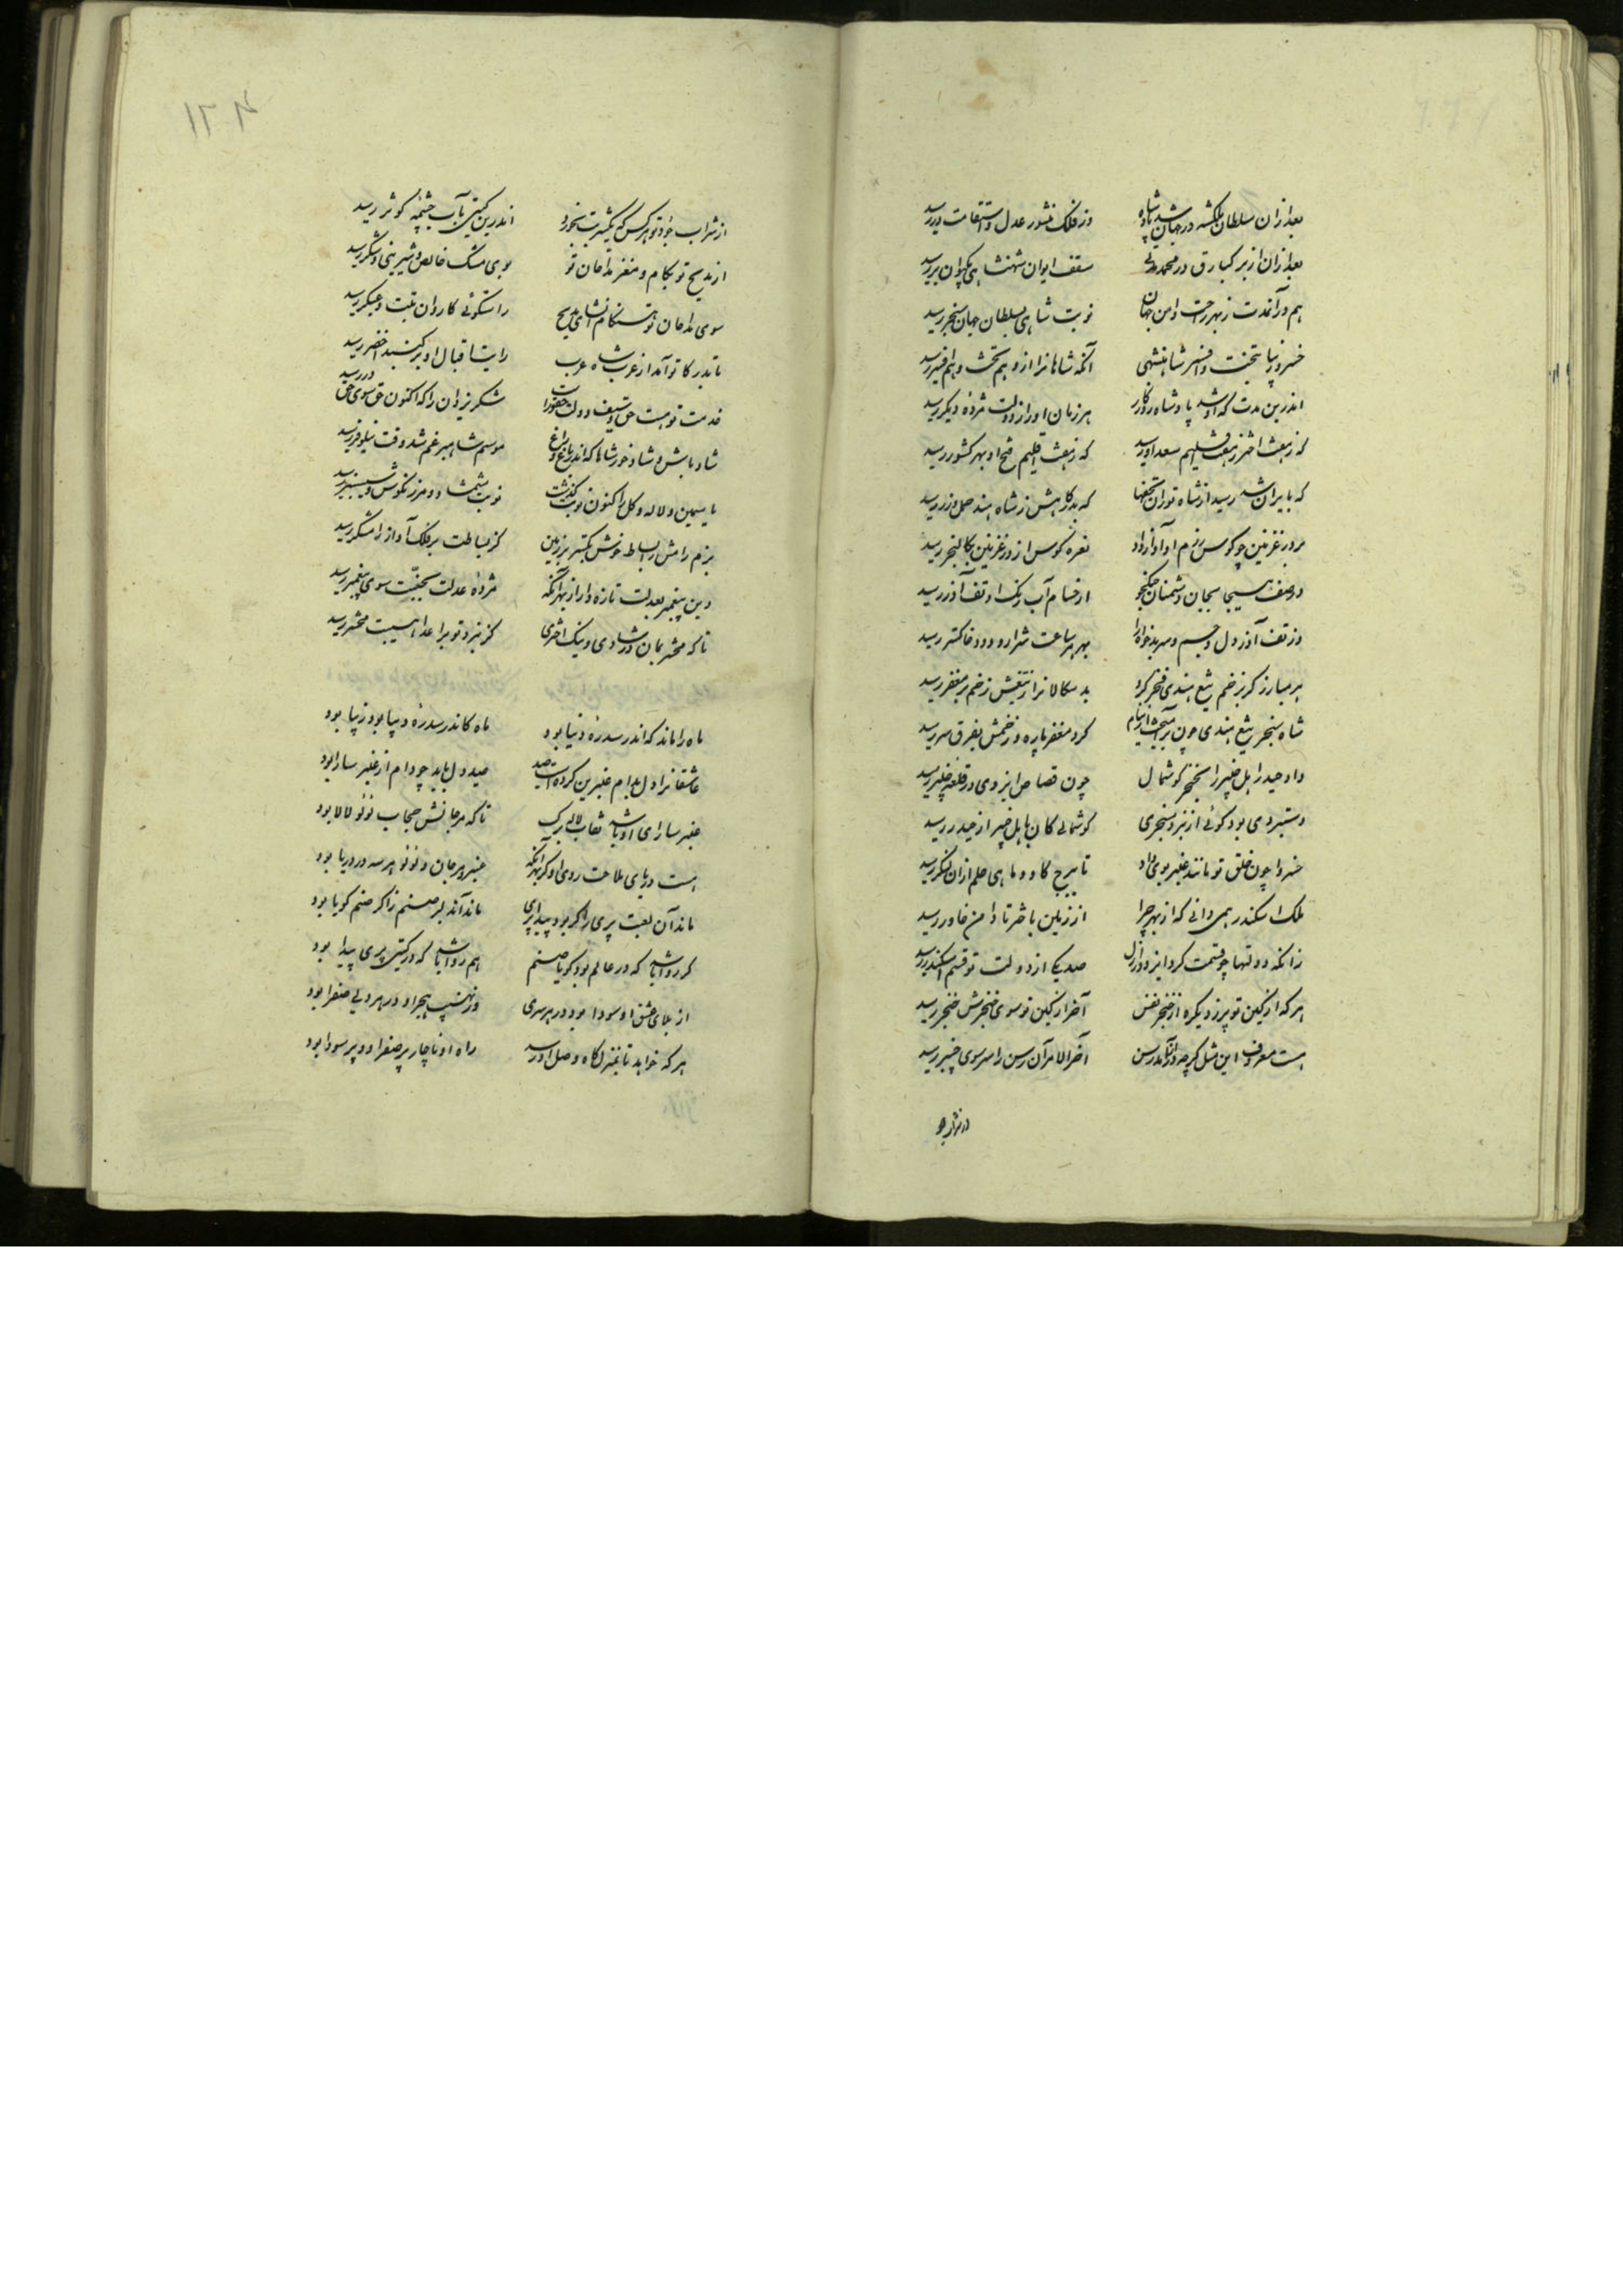 بعد ازان سلطان ملکشه در جهان شد پادشاه
وز فلک منشور عدل و استقامت در رسید
بعد ازان از برکیارق در محمد ملک
سقف ایوان شهنشاهی بکیوان بر رسید
هم در آنمدت ز بهر راحت و امن جهان
نوبت شاهی بسلطان جهان سنجر رسید
خسرو زیبا بتخت و افسر شاهنشهی
آنکه شاهانرا ازو هم تخت و هم افسر رسید
اندرین مدت که او شد پادشاه روزگار
هر زمان او را ز دولت مژده دیگر رسید
که ز هفت اختر بهفت اقلیم سعد او رسید
که ز هفت اقلیم فتح او بهر کشور رسید
که بایران شد رسید از شاه توران تحفها
که بدرگاهش ز شاه هند حمل زر رسید
بر در غزنین چو کوس رزم او آواز داد
نعره کوس از در غزنین بکالنجر رسید
در صف هیجا بجان دشمنان جنگجو
از حسام آب رنگ او تف آذر رسید
وز تف آذر دل و جسم و سر بدخواه را
بهر هر ساعت شرار و دود و خاکستر رسید
هر مبارز کز زخم تیغ هندی فخر کرد
بدسکالانرا ز تیغش زخم بر مغفر رسید
شاه سنجر تیغ هندی چون برآهیخت از نیام
کرد مغفر پاره و زخمش بفرق سر رسید
داد حیدر اهل خیبر را بخنجر گوشمال
چون قصاص ایزدی در قلعه خیبر رسید
دستبردی بود گوئی از نبرد سنجری
گوشمالی کان باهل خیبر از حیدر رسید
خسروا چون خلق تو مانند عنبر بوی داد
تا ببرج گاو و ماهی حلم ازان لنگر رسید
ملک اسکندر همی دانی که از بهر چرا
از زمین باختر تا دامن خاور رسید
زانکه دولتها چو قسمت کرد ایزد در ازل
صد یک از دولت تو قسم اسکندر رسید
هر که از کین تو برزد یکره از خنجر نفس
آخر از کین تو سوی حنجرش خنجر رسید
هست معروف این مثل گرچه دراز آمد رسن
آخر الامر آن رسن را سر سوی چنبر رسید
از شراب جود تو هر کس که یکشربت بخورد
اندرین گیتی بآب چشمه کوثر رسید
از مدیح تو بکام و مغز مداحان تو
بوی مشک خالص و شیرینی و شکر رسید
سوی مداحان تو هنگام انشای مدیح
راستگوئی کاروان تبت و عسکر رسید
تا بدرگاه تو آمد از عرب شاه عرب
رایت اقبال او بر گنبد اخضر رسید
خدمت تو هست حق و سیف دولت حقورا
شکر یزدان را که اکنون حق سوی حق در رسید
شاد باش و شاد خور شاها که اندر باغ و راغ
موسم شاهسپرغم شد وقت نیلوفر رسید
یاسمین و لاله و گل را کنون نوبت گذشت
نوبت شمشاد و مرزنگوش و سیسنبر رسید
بزم رامش را بساط خوش بگستر بر زمین
کز بساطت بر فلک آواز رامشگر رسید
دین پیغمبر بعدلت تازه دار از بهر آنکه
مژده عدلت بجنت سوی پیغمبر رسید
تا که محشر بمان در شادی و نیک اختری
کز نبرد تو بر اعدا هیبت محشر رسید
ماه را ماند که اندر سدره دنیا بود
ماه کاندر سدره دیبا بود زیبا بود
عاشقانرا دل بدام عنبرین کرده است صید
صید دل باید چو دام از عنبر سارا بود
عنبر سارای او باشد نقاب لاله برگ
تا که مرجانش حجاب لؤلؤ لالا بود
هست دریای ملاحت روی او از بهر آنکه
عنبر و مرجان و لؤلؤ هر سه در دریا بود
ماند آن لعبت پری را گر بود پیدا پری
ماند آن دلبر صنم را گر صنم گویا بود
گر روا باشد که در عالم بود گویا صنم
هم روا باشد که در گیتی پری پیدا بود
از بلای عشق او سودا بود در هر سری
وز نهیب هجر او در هر دلی صفرا بود
هر که خواهد تا بمنزلگاه وصل او رسد
راه او ناچار پر صفرا و پر سودا بود